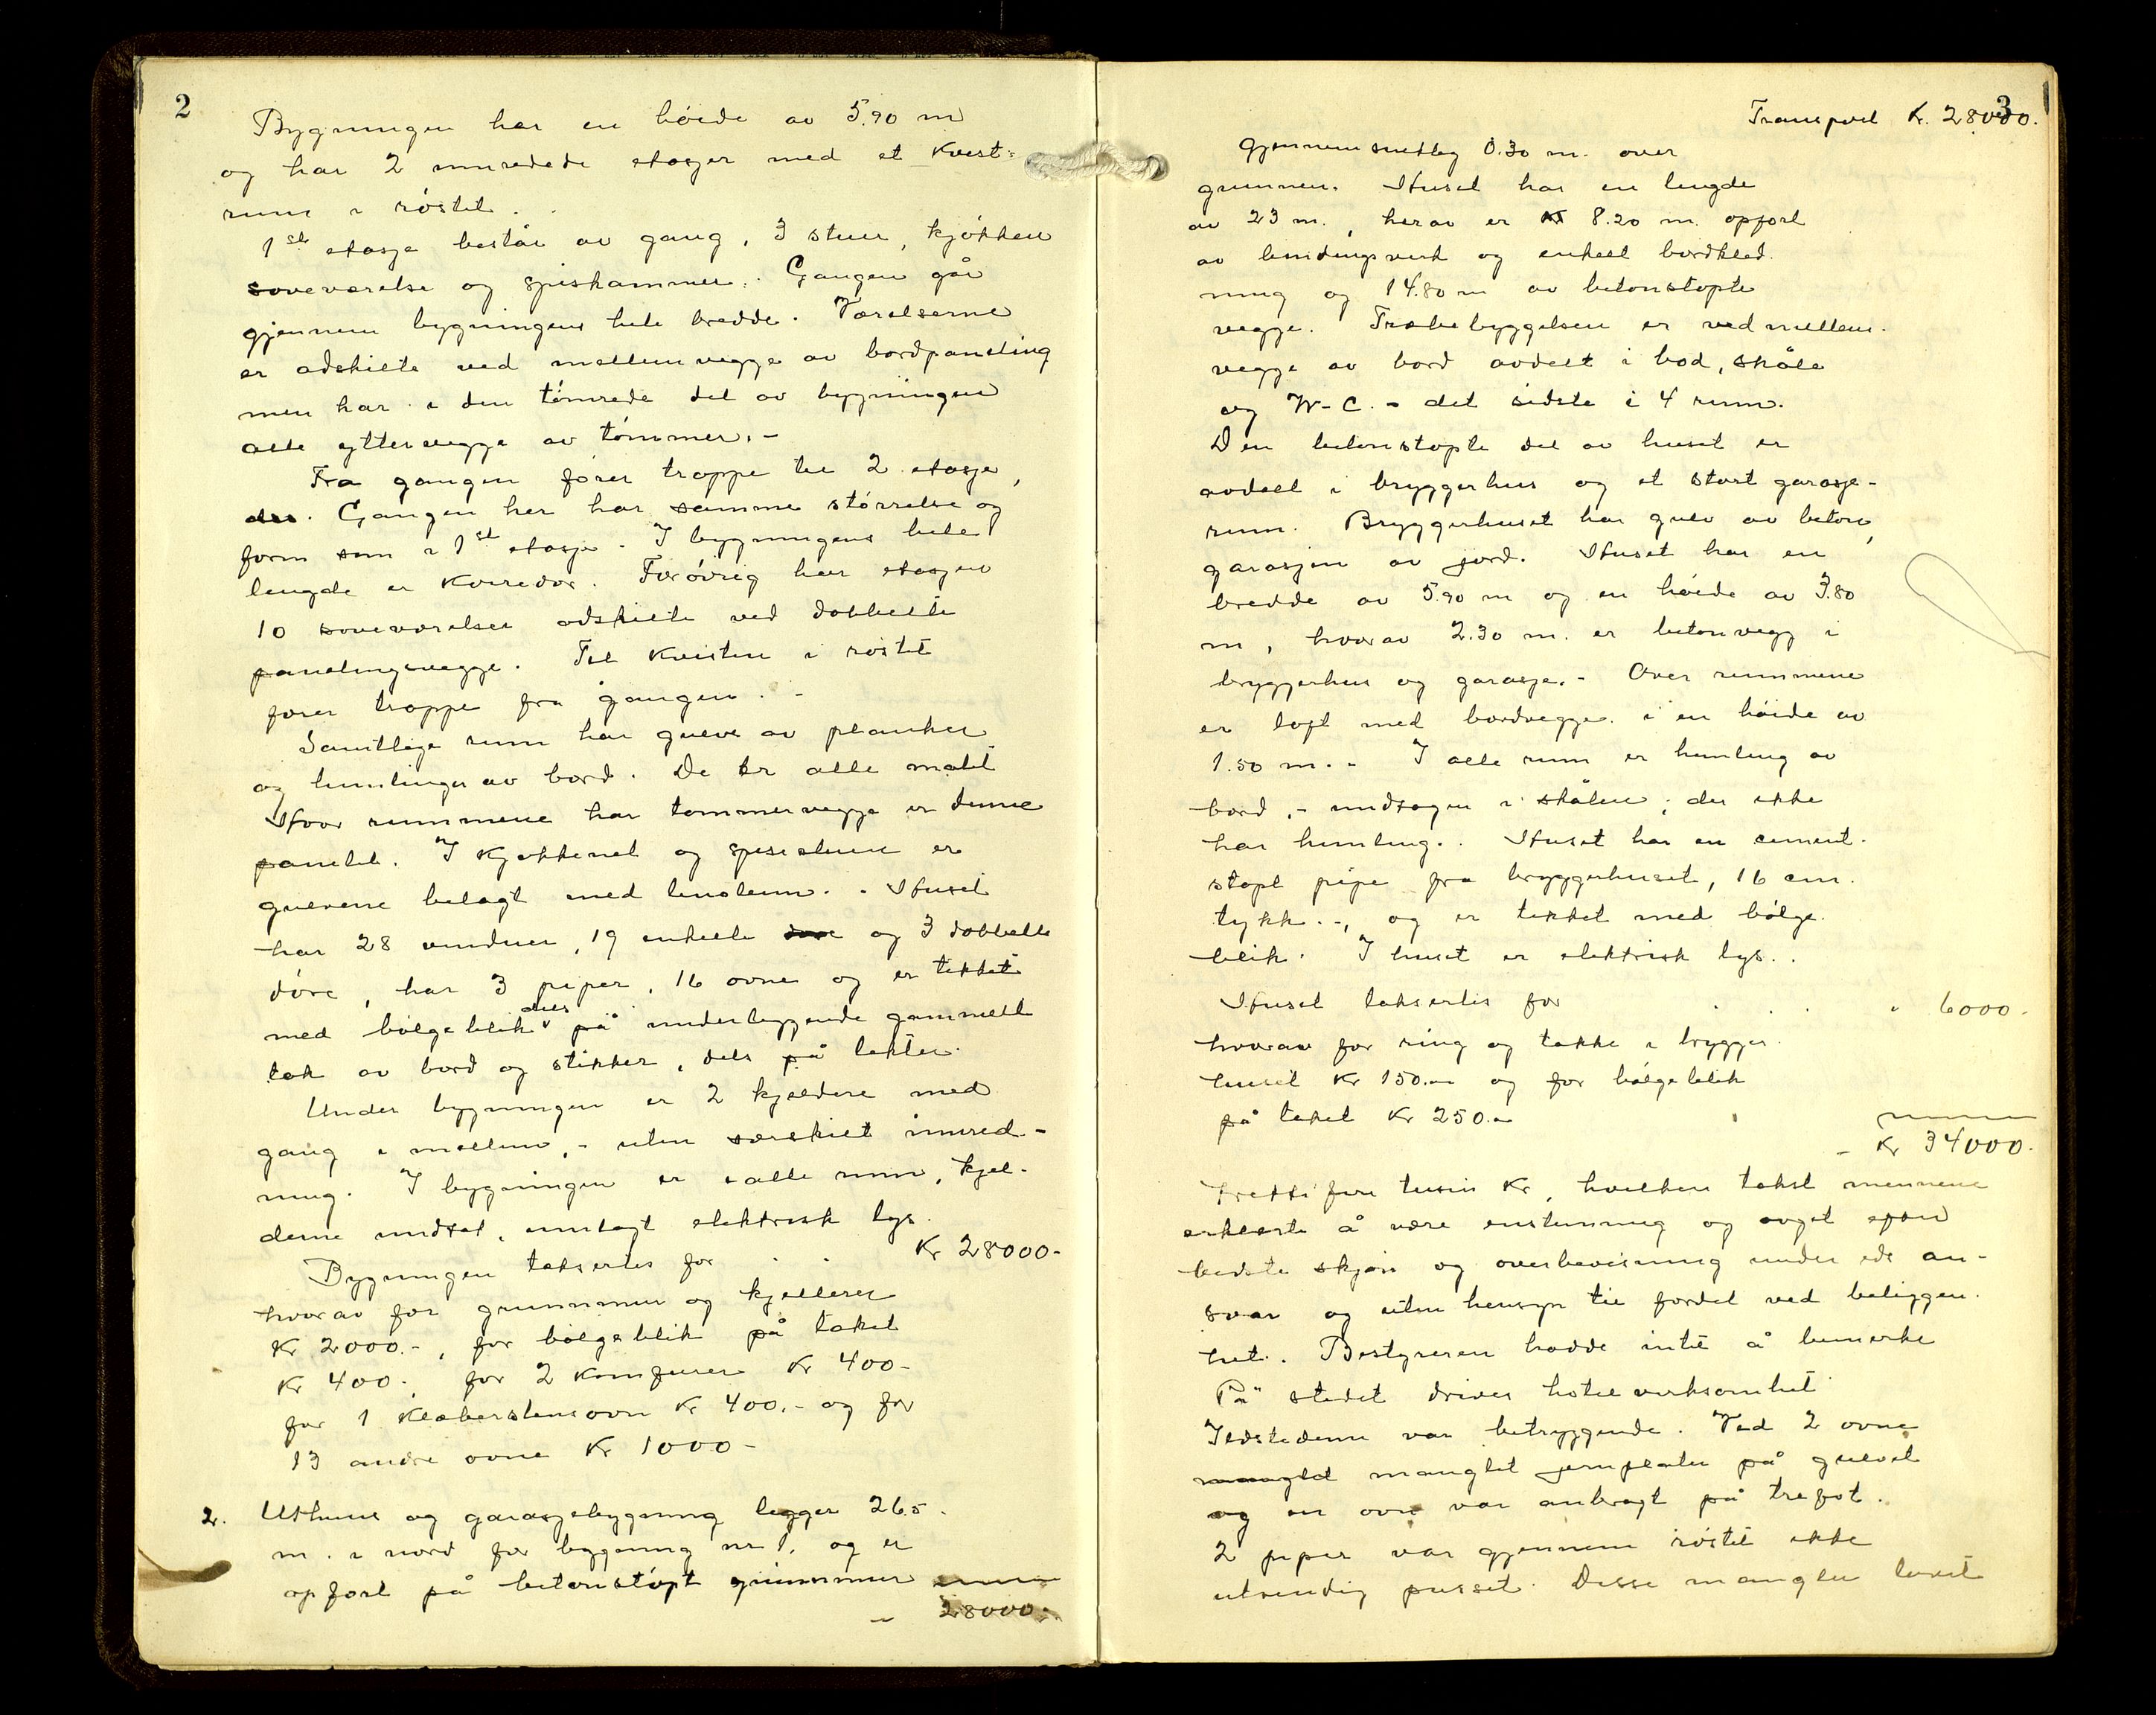 2
Bygningen har en høide av 5.90 m
og har 2 innredede etasjer med et kvist-
rum i røstet.
1ste etasje består av gang, 3 stuer, kjøkken
soveværelse og spiskammer. Gangen går
gjennem bygningens hele bredde. Værelserne
er adskilte ved mellemvegge av bordpaneling
men har i den tømrede del av bygningen
alle yttervegge av tømmer. -
Fra gangen fører trappe til 2 etasje,
Gangen her har samme størrelse og
form som i 1ste etasje. I bygningens hele
lengde er korridor. Forøvrig har etasjen
10 soveværelser adskilte ved dobbelte
panelingsvegge. Til kvisten i røstet
fører trappe fra gangen. -
Samtlige rum har gulve av planker
og himlinger av bord. De er alle malt
Hvor rummene har tømmervegge er denne
panelt. I kjøkkenet og spisestuen er
gulvene belagt med linoleum. - Huset
har 28 vinduer, 19 enkelte og 3 dobbelte
døre, har 3 piper, 16 ovne og er tekket
med bølgeblik dels på underliggende gammelt
tak av bord og stikker, dels på lekter.
Under bygningen er 2 kjeldere med
gang i mellem, - uten særskilt innred-
ning. I bygningen er i alle rum, kjel-
derne undtat, innlagt elektrisk lys.
Bygningen takseres for . . Kr 28000-
hvorav for grunnmur og kjellerer
Kr 2000.-, for bølgeblik på taket
Kr 400-, for 2 komfurer Kr 400-
for 1 klæberstensovn Kr 400.- og for
13 andre ovne Kr 1000-
2. Uthus og garasjebygning ligger 26.5
m. i nord for bygning nr 1, og er
opført på betonstøpt grunnmur
- 28000.-
3
Transport Kr. 28000.
gjennemsnitlig 0.30 m. over
grunnen. Huset har en lengde
av 23 m., herav er 8.20 m. opført
av bindingsverk og enkelt bordkled-
ning og 14.80 m av betonstøpte
vegge. Træbebyggelsen er ved mellem-
vegge av bord avdelt i bod, skåle
og W-C. - det sidste i 4 rum.
Den betonstøpte del av huset er
avdelt i bryggerhus og et stort garasje-
rum. Bryggerhuset har gulv av beton,
garasjen av jord. Huset har en
bredde av 5.90 m og en høide av 3.80
m, hvorav 2.30 m. er betonvegg i
bryggerhus og garasje. - Over rummene
er loft med bordvegge i en høide av
1.50 m. - I alle rum er himling av
bord, - undtagen i skålen, der ikke
har himling. Huset har en cement-
støpt pipe fra bryggerhuset, 16 cm.
tykk -, og er tekket med bølge-
blik. I huset er elektrisk lys.
Huset takseres for . . . " 6000.
hvorav for ring og takke i brygger-
huset Kr 150.- og for bølgeblik
på taket Kr 250.-
- Kr 34000.
Tretti fire tusin Kr, hvilken takst mennene
erklærte å være enstemmig og avgit efter
bedste skjøn og overbevisning under eds an-
svar og uten hensyn til fordel ved beliggen-
het. Bestyreren hadde intet å bemerke
På stedet drives hotelvirksomhet
Ildstederne var betryggende. Ved 2 ovne
manglet jernplater på gulvet
og en ovn var anbragt på trefot.
2 piper var gjennem røstet ikke
utvendig pusset. Disse mangler lovet